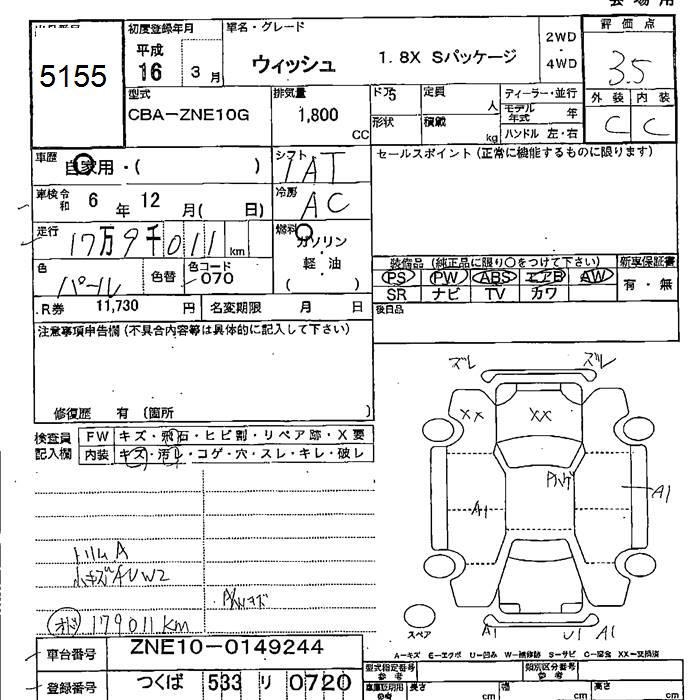 会場用
出品番号 初度登録年月 車名・グレード 評価点
5155 平成 16 3月 ウィッシュ 1.8X Sパッケージ 2WD・4WD 3.5
外装 内装
C C
型式 CBA-ZNE10G 排気量 1,800 CC ドア 5 定員 人 ディーラー・並行
形状 積載 kg モデル年式 年
ハンドル 左・右
車歴 自家用・( ) シフト IAT セールスポイント (正常に機能するものに限ります)
車検 令和 6年 12月( 日) 冷房 AC
走行 17万9千011km 燃料 ガソリン
軽・油
( )
色 パール 色替 色コード 070
装備品 (純正品に限り〇をつけて下さい) 新車保証書
PS PW ABS エアB AW 有・無
SR ナビ TV カワ
.R券 11,730 円 名変期限 月 日 後日品
注意事項申告欄 (不具合内容等は具体的に記入して下さい)
修復歴 有 (箇所 )
ズレ ズレ
検査員記入欄 FW キズ・飛石・ヒビ割・リペア跡・X要
内装 キズ・汚レ・コゲ・穴・スレ・キレ・破レ
XX XX
A1 A1
トリムA
小キズAUW2
オド 179011km
スペア A1 U1 A1
A-キズ E-エクボ U-凹み W-補修跡 S-サビ C-腐食 XX-交換済
車台番号 ZNE10-0149244
型式指定番号 参考 類別区分番号 参考
登録番号 つくば 533 リ 0720
車庫証明用 参考 長さ cm 幅 cm 高さ cm